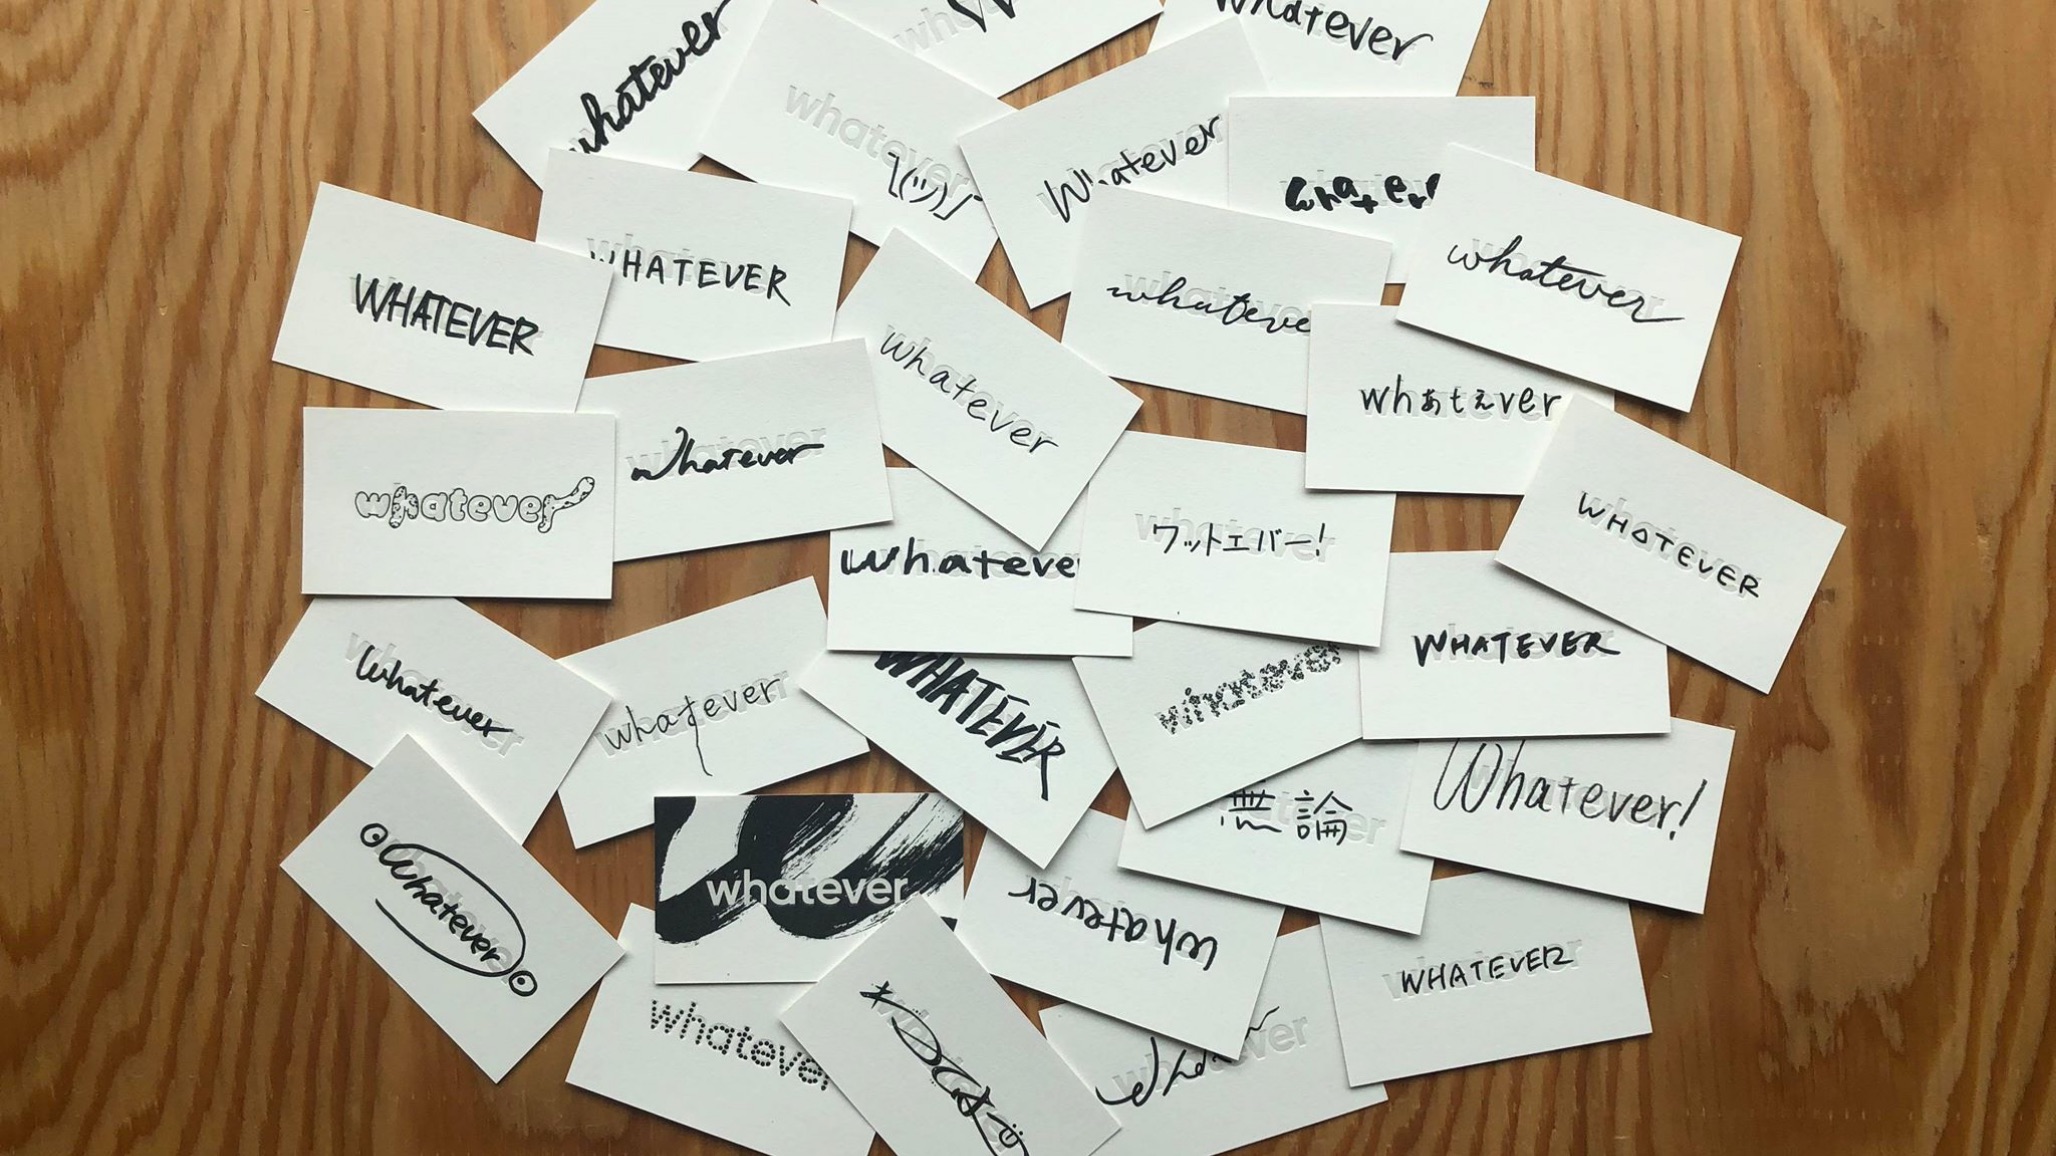 whatever
wh
whatever
whatever
¯\(ツ)/¯
Whatever
whatever
whatever
WHATEVER
WHATEVER
whateve
whatever
whあtえver
whatever
whatever
whatever
whateve
ワットエバー!
WHOTEVER
WHATEVER
whatever
whatever
WHATEVER
whatever
無論
Whatever!
whatever
whatever
whatever
WHATEVER
whateve